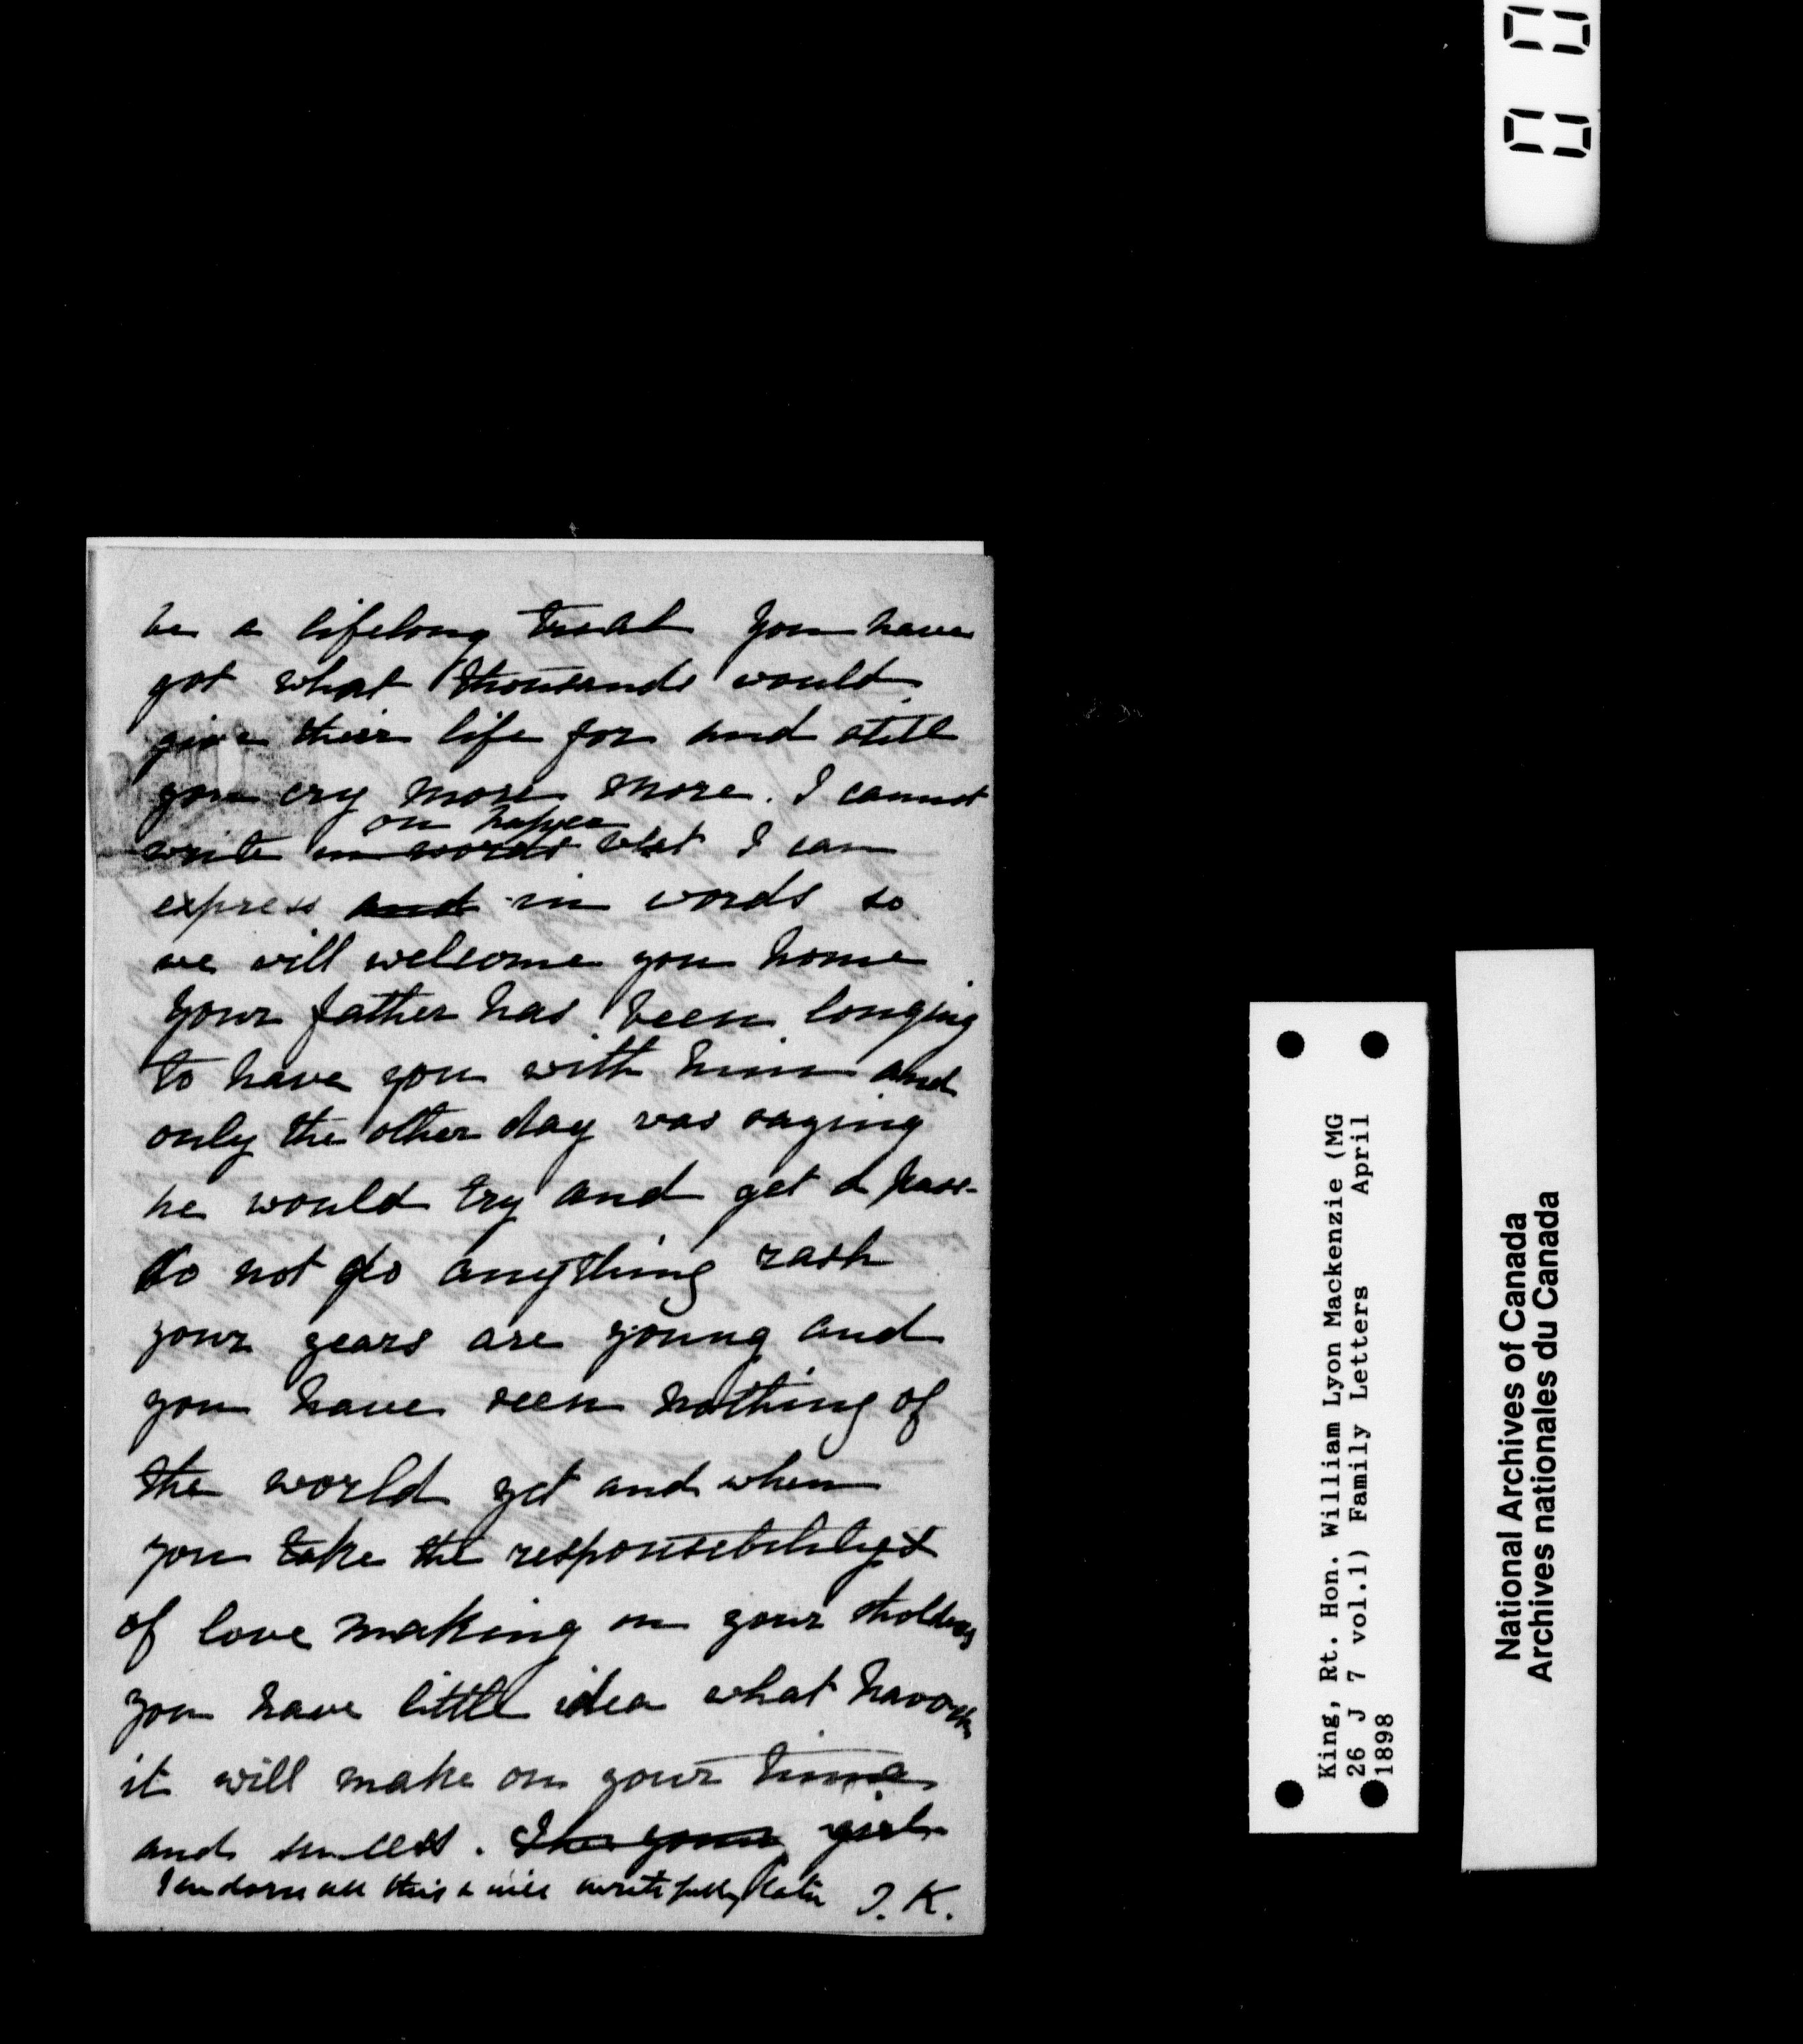 be a lifelong treat You have
got what thousands would
give their life for and still
you cry more more. I cannot
on paper
write in words what I can
express and in words so
we will welcome you home
Your father has been longing
to have you with him and
only the other day was saying
he would try and get a pass-
do not do anything rash
your years are young and
you have seen nothing of
the world yet and when
you take the responsebility
of love making on your sholders
you have little idea what havock
it will make on your time
and success. girl
I endorse all this & will write fully later J. K.
King, Rt. Hon. William Lyon Mackenzie (MG
26 J 7 vol.1) Family Letters April
1898
National Archives of Canada
Archives nationales du Canada